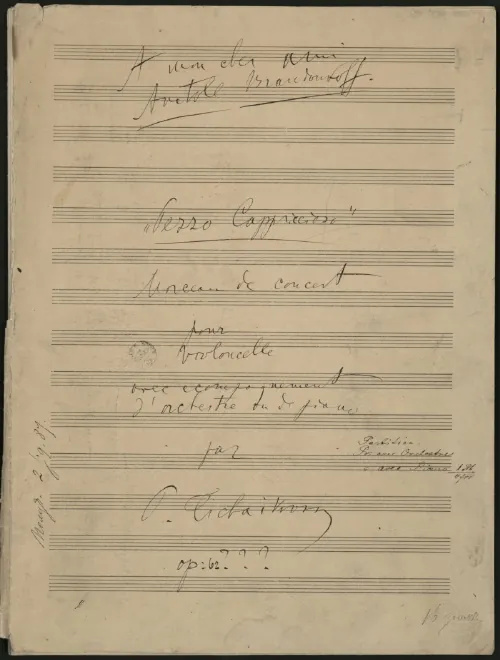 A mon cher ami
Anatole Brandoukoff.
„Pezzo Cappriccioso"
Morceau de concert
pour
Violoncelle
avec accompagnement
d'orchestre ou de piano
par
P. Tschaikovsky
op: 62? ? ?
Partition